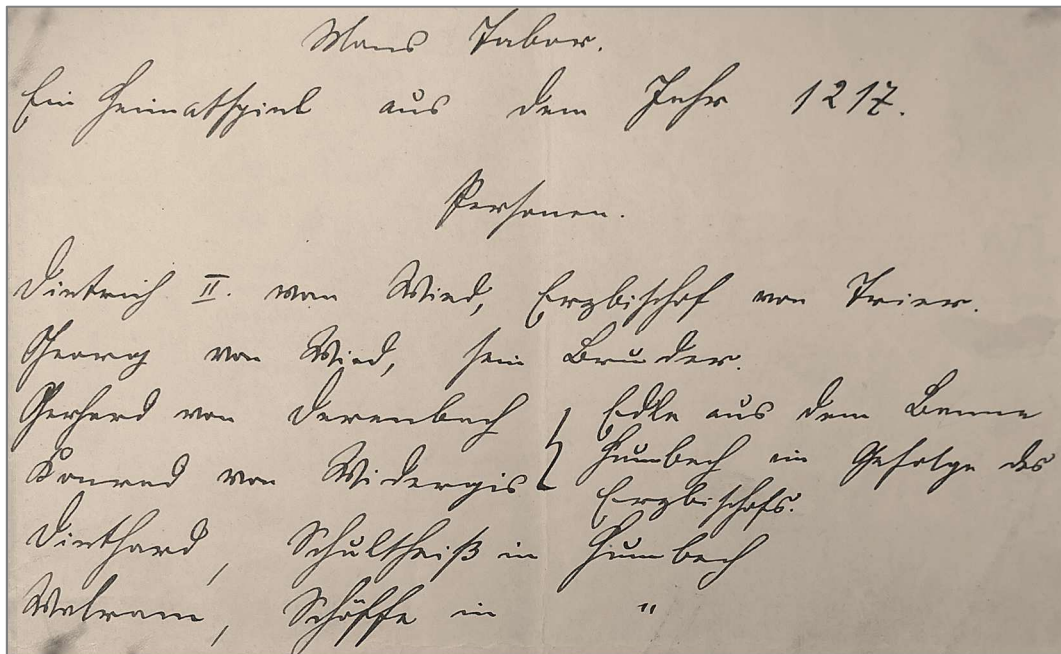 Mons Tabor.
Ein Heimatspiel aus dem Jahr 1217.
Personen.
Dietrich II. von Wied, Erzbischof von Trier.
Georg von Wied, sein Bruder.
Gerhard von Derenbach } Edle aus dem Banne
Konrad von Widergis } Humbach im Gefolge des
Erzbischofs.
Diethard, Schultheiß in Humbach
Walram, Schöffe in "